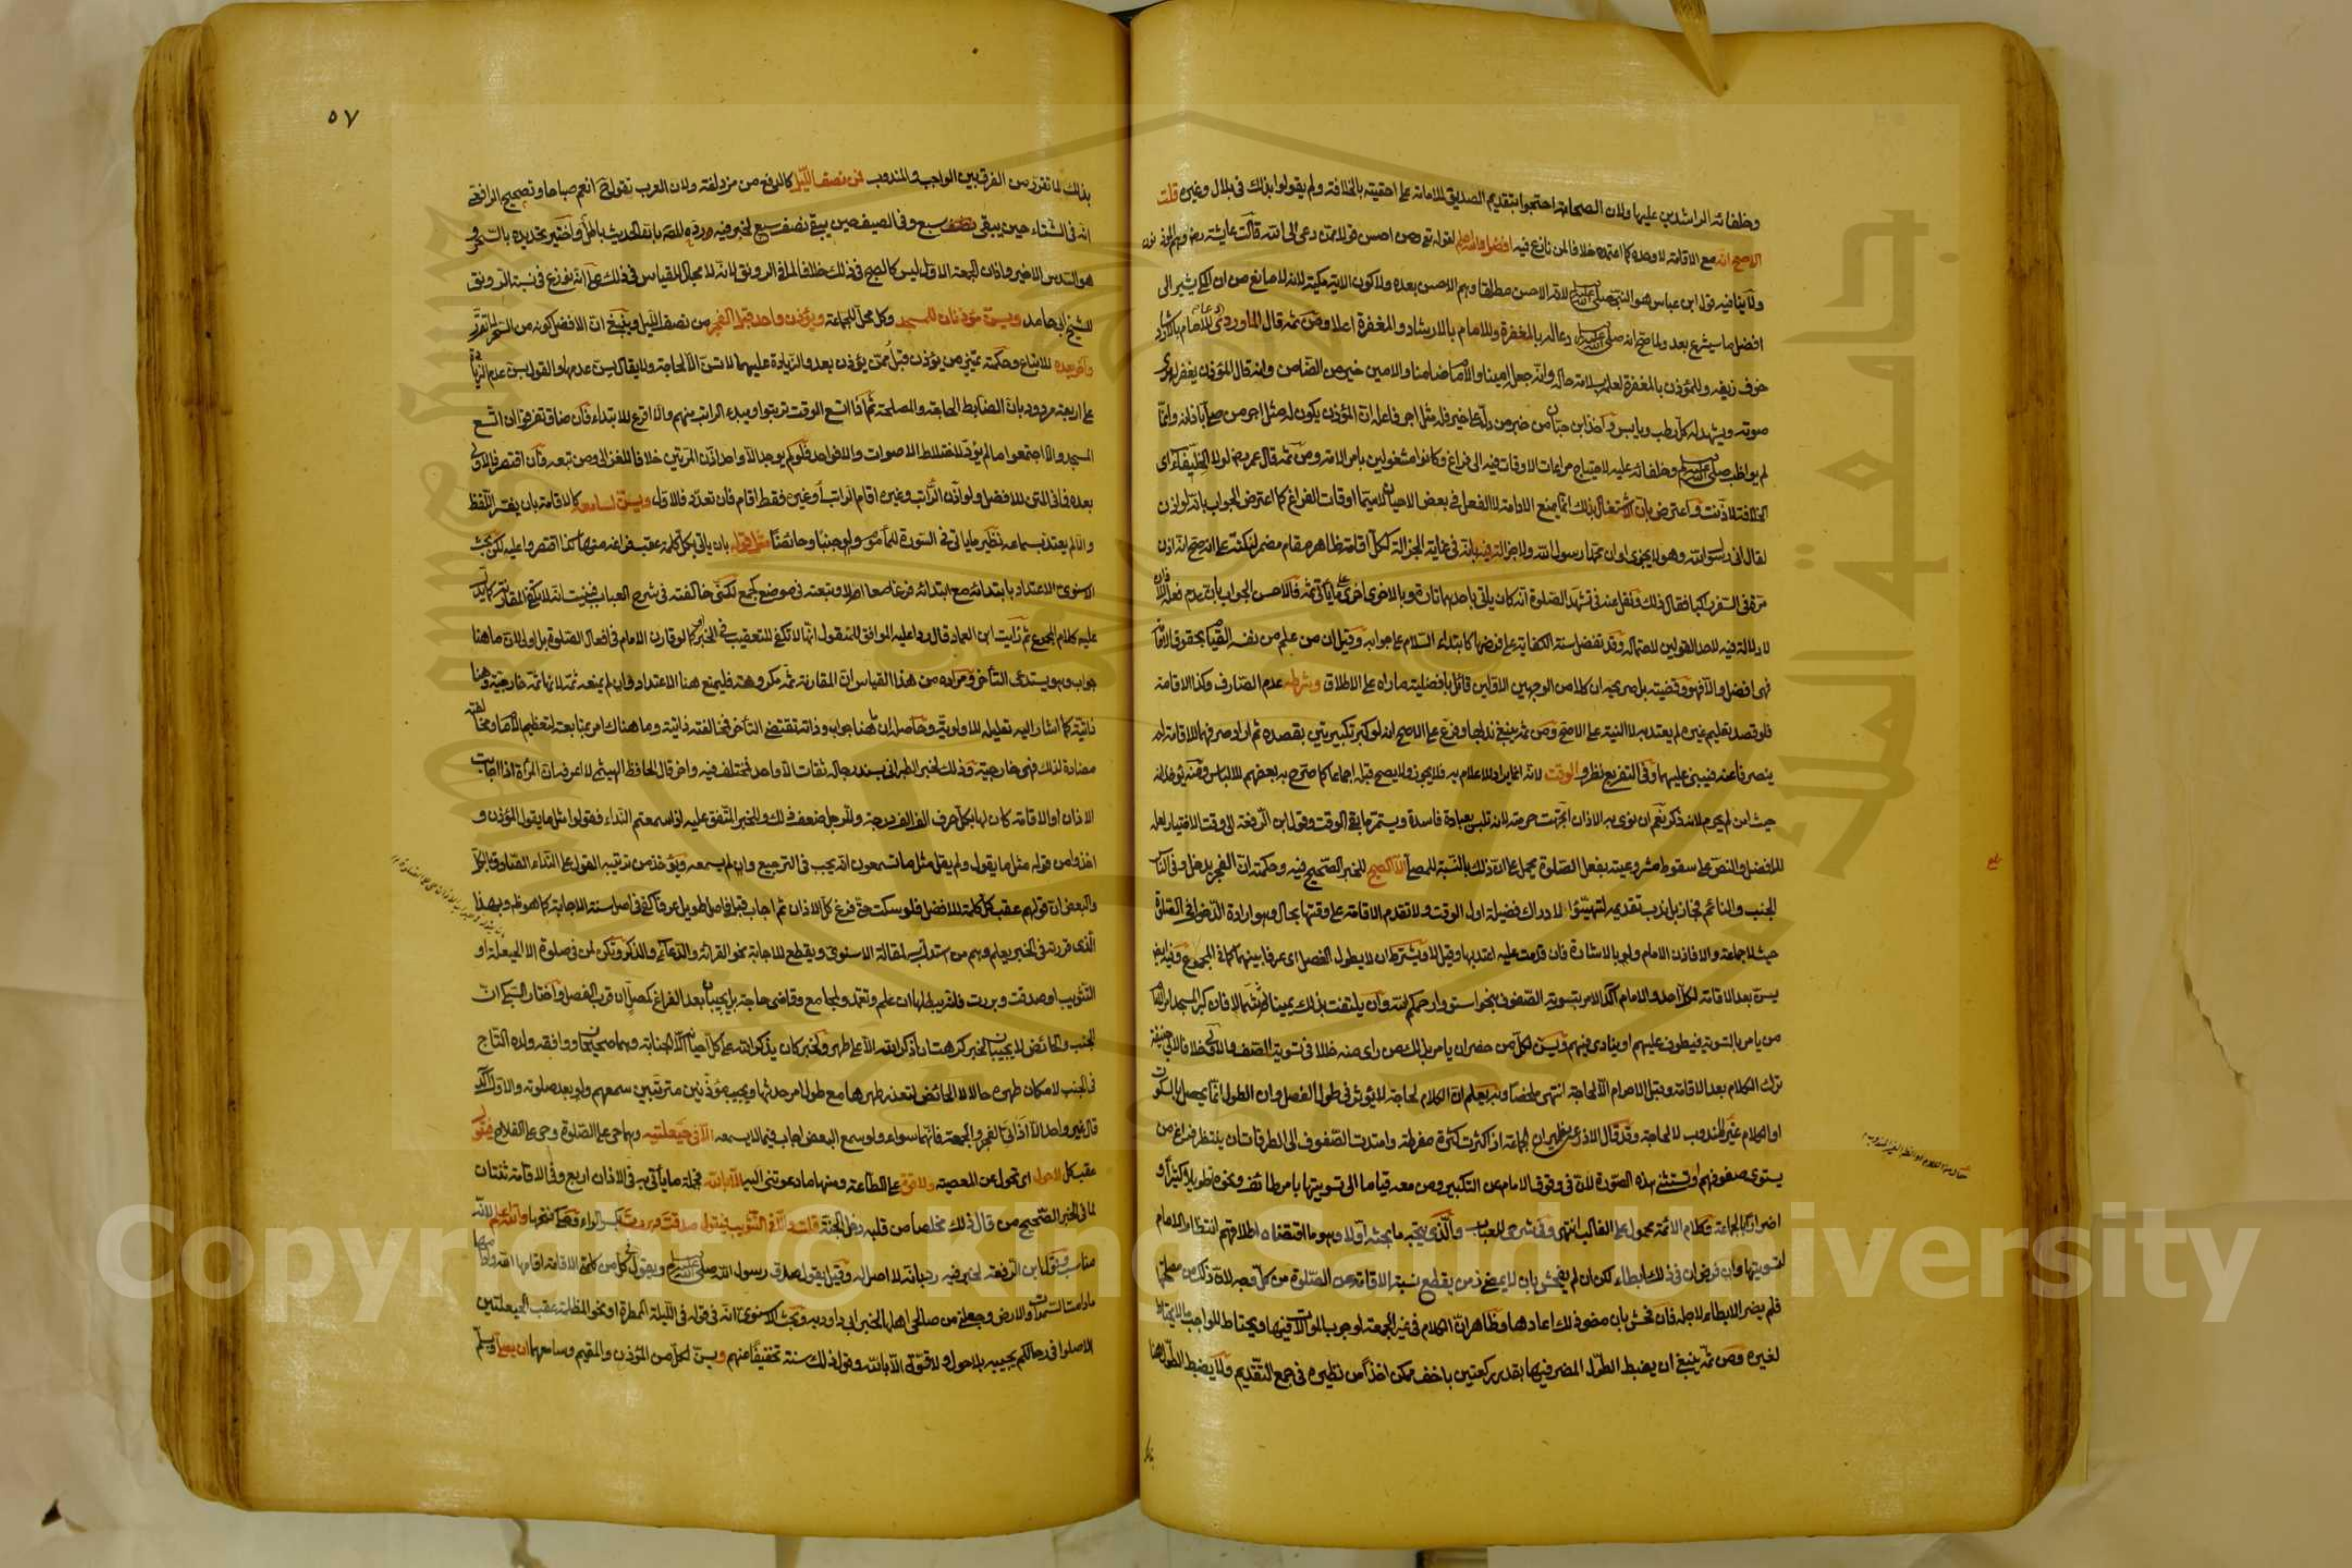 وخلفائه الراشدين عليها ولان الصحابة احتجوا بتقديم الصديق للامامة على احقيته بالخلافة ولم يقولوا بذلك في بلال وغيره قلت
الاصح انه مع الاقامة لا وحده كما اعتمده خلافا لمن نازع فيه افضل والله اعلم لقوله تع ومن احسن قولا ممن دعى الى الله قالت عايشة رضي الله عنها هم المؤذنون
ولا ينافيه قول ابن عباس هو النبي صلى الله عليه وسلم لانه الاحسن مطلقا وهم الاحسن بعده ولا كون الاية مكية لانه لا مانع من ان المكي يشير الى
افضل ما سيشرع بعد ولما صح انه صلى الله عليه وسلم دعا له بالمغفرة وللامام بالارشاد والمغفرة اعلا ومن ثمه قال الماوردي دعا للامام بالارشاد
خوف زيغه وللمؤذن بالمغفرة لعلمه بسلامة حاله وانه جعله امينا والامام ضامنا والامين خير من الضامن وانه قال المؤذن يغفر له مدى
صوته ويشهد له كل رطب ويابس واخذ ابن حبان من خبر من دل على خير فله مثل اجر فاعله ان المؤذن يكون له مثل اجر من صلى باذانه وانما
لم يواظب صلى الله عليه وسلم وخلفائه عليه لاحتياج مراعات الاوقات فيه الى فراغ وكانوا مشغولين بامر الامة ومن ثمه قال عمر رضي لولا الخليفا اي
الخلافة لاذنت واعترض بان الاشتغال بذلك انما يمنع الادامة لا الفعل في بعض الاحيان لاسيما اوقات الفراغ كما اعترض الجواب بانه لو اذن
لقال اني رسول الله وهو لا يجزي او ان محمدا رسول الله ولا جزالة فيه بانه في غاية الجزالة لكل اقامة ظاهر مقام مضمر لنكتة على انه صح انه اذن
مرة في السفر راكبا فقال ذلك ونقل عنه في تشهد الصلوة انه كان يأتي باحدهما تارة وبالاخرى اخرى على ما يأتي ثمه فالاحسن الجواب بان عدم فعله للاذان
لا دلالة فيه لاحد القولين لاحتماله وقد تفضل سنة الكفاية على فرضها كابتداء السلام على جوابه وقيل ان من علم من نفسه القيام بحقوق الامامة
فهي افضل والا فهو وقضيته بل صريحه ان كلا من الوجهين الاولين قائل بافضلية ما رآه على الاطلاق وشرطه عدم الصارف وكذا الاقامة
فلو قصد تعليم غيره لم يعتد به لا النية على الاصح ومن ثمه ينبغي ندبها وفرع على الاصح انه لو كبر تكبيرتين بقصده ثم اراد صرفهما للاقامة لم
ينصرفا عنه فيبني عليهما وفي التفريع نظر والوقت لانه انما يراد للاعلام به فلا يجوز ولا يصح قبله اجماعا كما صرح به بعضهم للالباس ومنه يؤخذ انه
حيث امن لم يحرم لانه ذكر نعم ان نوى به الاذان اتجهت حرمته لانه تلبس بعبادة فاسدة ويستمر ما بقي الوقت وقول ابن الرفعة الى وقت الاختيار لعله
للافضل والنص على سقوط مشروعيته بفعل الصلوة يحمل على ان ذلك بالنسبة للمصلي الا الصبح للخبر الصحيح فيه وحكمته ان الفجر يدخل وفي الناس
الجنب والنائم فجاز بل ندب تقديمه لتهيئوا لادراك فضيلة اول الوقت ولا تقدم الاقامة على وقتها بحال وهو ارادة الدخول في الصلوة
حيث لا جماعة والا فاذن الامام ولو بالاشارة فان قدمت عليه اعتد بها وقيل لا ويشترط ان لا يطول الفصل اي عرفا بينهما كما في المجموع وفيه ايضا
يسن بعد الاقامة لكل احد والامام آكد الامر بتسوية الصفوف بنحو استووا رحمكم الله وان يلتفت بذلك يمينا ثم شمالا فان كبر المسجد امر الامام
من يامر بالتسوية فيطوف عليهم او ينادي فيهم ويسن لكل من حضر ان يامر بذلك من راى منه خللا في تسوية الصف والاولى خلافا لابي حنيفة
ترك الكلام بعد الاقامة وقبل الاحرام الا لحاجة انتهى ملخصا وبه يعلم ان الكلام لحاجة لا يؤثر في طول الفصل وان الطول انما يحصل بالسكوت
او الكلام غير المندوب لا لحاجة وقد قال الاذرعي يظهر ان الجماعة اذا كثرت كثرة مفرطة وامتدت الصفوف الى الطرقات ان ينتظر فراغ من
يسوي صفوفهم او تستثنى هذه الصورة لان في وقوف الامام عن التكبير ومن معه قياما الى تسويتها بامر طائف ونحوه تطويلا كثيرا و
اضرارا بالجماعة وكلام الائمة محمول على الغالب انتهى وفي شرحي للعباب والذي يتجه ما بحثه اولا وهو ما اقتضاه اطلاقهم انتظار الامام
لتسويتها وان فرض ان في ذلك ابطاء لكن ان لم يفحش بان لا يمضي زمن يقطع نسبة الاقامة عن الصلوة من كل وجه لان ذلك من مصلحتها
فلم يضر الابطاء لاجله فان فحش بان مضى ذلك اعادها وظاهر ان الكلام في غير الجمعة لوجوب الموالاة فيها ويحتاط للواجب ما لا يحتاط
لغيره ومن ثمه ينبغي ان يضبط الطول المضر فيها بقدر ركعتين باخف ممكن اخذا من نظيره في جمع التقديم ولا يضبط الطول هنا
٥٧
بذلك لما تقرر من الفرق بين الواجب والمندوب فمن نصف الليل كالدفع من مزدلفة ولان العرب تقول ح انعم صباحا وتصحيح الرافعي
انه في الشتاء حين يبقى نصف سبع وفي الصيف حين يبقى نصف سبع لخبر فيه مردود للقه بان الحديث باطل واختير تحديده بالسحر و
هو السدس الاخير واذان الجمعة الاول ليس كالصبح في ذلك خلافا لما في الرونق لانه لا مجال للقياس في ذلك على انه نوزع في نسبة الرونق
للشيخ ابي حامد ويسن مؤذنان للمسجد وكل محل للجماعة ويؤذن واحد قبل الفجر من نصف الليل وينبغي ان الافضل كونه من السحر لما تقرر
وآخر بعده للاتباع وحكمته تمييز من يؤذن قبل ممن يؤذن بعد والزيادة عليهما لا تسن الا لحاجة ولا يقال يسن عدمها والقول يسن عدم الزيادة
على اربعة مردود بان الضابط الحاجة والمصلحة ثم اذا اتسع الوقت تربتوا ويبدء الراتب منهم والا اقرع للابتداء فان ضاق تفرقوا ان اتسع
المسجد والا اجتمعوا ما لم يؤد لاختلاط الاصوات والا فواحد فلو لم يوجد الا واحد اذن المرتين خلافا للغزالي ومن تبعه فان اقتصر فالاولى
بعده فاتى السنن للافضل ولو اذن الراتب وغيره اقام الراتب او غيره فقط اقام فان تعدد فالاول ويسن لسامعه كالاقامة بان يفسر اللفظ
والا لم يعتد بسماعه نظير ما ياتي في السورة للمأموم ولو جنبا وحائضا مثل قوله بان ياتي بكل كلمة عقب فراغه منها كذا اقتصروا عليه لكن بحث
الاسنوي الاعتداد بابتدائه مع ابتدائه فرغا معا ام لا وتبعته في موضع كجمع لكني خالفته في شرح العباب فبينت انه لا يكفي المقارنة كما يدل
عليه كلام المجموع ثم رأيت ابن العماد قال ردا عليه الموافق للمنقول انها لا تكفي للتعقيب في الخبر كما لو قارن الامام في افعال الصلوة بل اولى لان ما هنا
جواب وهو يستدعي التأخر ومراده من هذا القياس ان المقارنة ثمه مكروهة فليمنع هنا الاعتداد وان لم يمنعه ثمه لانها ثمه خارجية وهنا
ذاتية كما اشار اليه تعليله للاولوية وحاصله ان ما هنا جواب وذاته تقتضي التأخر فمخالفته ذاتية وما هناك امر بمتابعة لتعظيم الامام ومخالفته
مضادة لذلك فهي خارجية وذلك لخبر الطبراني بسند رجاله ثقات الا واحد فمختلف فيه واخر قال الحافظ الهيثمي لا اعرفه ان المرأة اذا اجابت
الاذان او الاقامة كان لها بكل حرف الف الف درجة وللرجل ضعف ذلك وللخبر المتفق عليه اذا سمعتم النداء فقولوا مثل ما يقول المؤذن و
اخذوا من قوله مثل ما يقول ولم يقل مثل ما تسمعون انه يجيب في الترجيع وان لم يسمعه ويؤخذ من ترتيبه القول على النداء الصادق بالكل
والبعض ان قولهم عقب كل كلمة للافضل فلو سكت حتى فرغ كل الاذان ثم اجاب قبل فاصل طويل عرفا كفى في اصل سنة الاجابة كما هو ظ وبهذا
الذي قررته في الخبر يعلم وهم من استدل به لمقالة الاسنوي ويقطع للاجابة نحو القرائة والدعاء والذكر وتكره لمن في صلوة الا الحيعلة او
التثويب او صدقت وبررت فانه يبطلها ان علم وتعمد ولمجامع وقاضي حاجة بل يجيبان بعد الفراغ كمصل ان قرب الفصل واختار السبكي ان
الجنب والحائض لا يجيبان لخبر كرهت ان اذكر الله الا على طهر ولخبر كان يذكر الله على كل احيانه الا الجنابة وهما صحيحان ووافقه ولده التاج
في الجنب لامكان طهره حالا لا الحائض لتعذر طهرها مع طول امر حدثها ويجيب مؤذنين مترتبين سمعهم ولو بعد صلوته والاول آكد
قال غير واحد الا اذاني الفجر والجمعة فانهما سواء ولو سمع البعض اجاب فيما لا يسمعه الا في حيعلتيه وهما حي على الصلوة وحي على الفلاح فيقول
عقب كل لا حول اي تحول عن المعصية ولا قوة على الطاعة ومنها ما دعوتني اليها الا بالله فجملة ما يأتي به في الاذان اربع وفي الاقامة ثنتان
لما في الخبر الصحيح من قال ذلك مخلصا من قلبه دخل الجنة قلت والا في التثويب فيقول صدقت وبررت بكسر الراء وحكي فتحها والله اعلم لانه
مناسب وقول ابن الرفعة لخبر فيه رد بانه لا اصل له وقيل يقول صدق رسول الله صلى الله عليه وسلم ويقول في كل من كلمتي الاقامة اقامها الله وادامها
ما دامت السموات والارض وجعلني من صالحي اهلها لخبر ابي داود به وبحث الاسنوي انه في قوله في الليلة الممطرة او نحو المظلمة عقب الحيعلتين
الا صلوا في رحالكم يجيبه بلا حول ولا قوة الا بالله وقول ذلك سنة تخفيفا عنهم ويسن لكل من المؤذن والمقيم وسامعهما ان يصلي ويسلم
Copyright © King Saud University